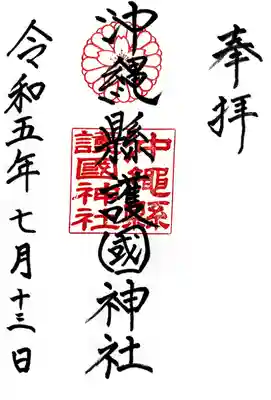 奉拝
沖縄縣護國神社
沖繩縣
護國神社
令和五年七月十三日